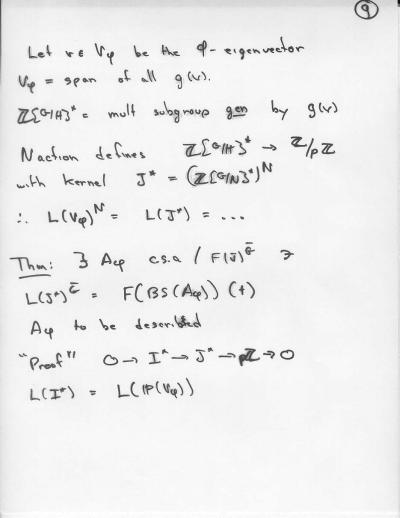 9
Let v ∈ Vφ be the φ- eigenvector
Vφ = span of all g(v).
Z[G/H]* = mult subgroup gen by g(v)
N action defines Z[G/H]* → Z/pZ
with kernel J* = (Z[G/N]*)^N
∴ L(Vφ)^N = L(J*) = ...
Thm: ∃ Aφ c.s.a / F(J)^G̅ ∋
L(J*)^G̅ = F(BS(Aφ))(t)
Aφ to be described
"Proof" 0 → I* → J* → pZ → 0
L(I*) = L(P(Vφ))